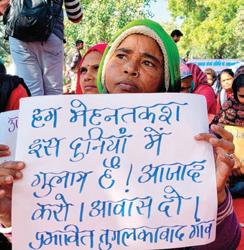 हम मेहनतकश
इस दुनियाँ में
गुलाम हैं। आजाद
करो। आवास दो।
प्रभावित तुगलकाबाद गाँव